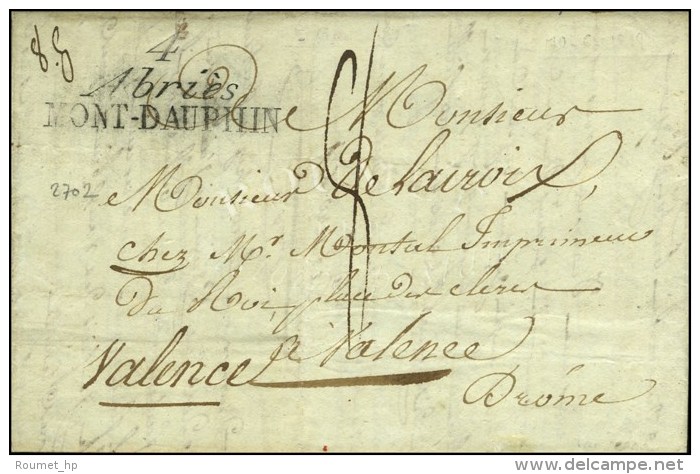 4
Abriès
MONT-DAUPHIN
A Monsieur
2702
Monsieur De lacroix,
chez Mr. Montal Imprimeur
Du Roi, place des clercs
Valence a Valence
Drôme
Roumet_hp
delcampe.net